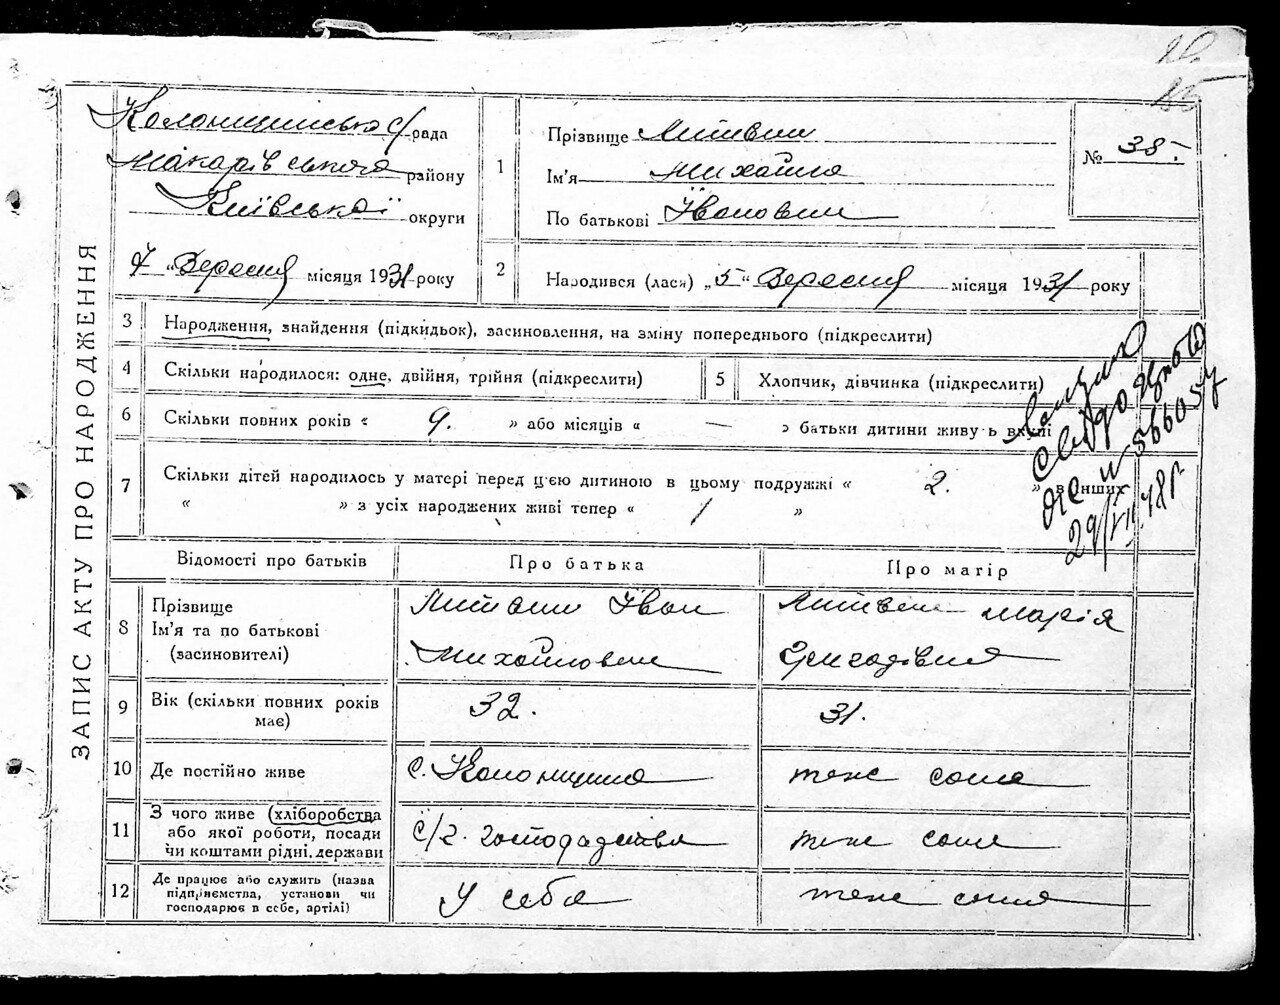 ЗАПИС АКТУ ПРО НАРОДЖЕННЯ
Колонщинська с/рада
Макарівського району
Київської округи
7 „ Вересня місяця 1931 року
1
Прізвище Литвин
Ім'я Михайло
По батькові Іванович
№ 38.
2
Народився (лася) „5" Вересня місяця 1931 року
3 Народження, знайдення (підкидьок), засиновлення, на зміну попереднього (підкреслити)
4 Скільки народилося: одне, двійня, трійня (підкреслити)
5 Хлопчик, дівчинка (підкреслити)
6 Скільки повних років « 9. » або місяців « — » батьки дитини живуть вкупі
7 Скільки дітей народилось у матері перед цією дитиною в цьому подружжі « 2. » в інших
« » з усіх народжених живі тепер « 1 »
29/VII 48р
Відомості про батьків
Про батька
Про матір
8
Прізвище
Ім'я та по батькові
(засиновителі)
Литвин Іван
Михайлович
Литвин Марія
Григорівна
9 Вік (скільки повних років
має)
32.
31.
10 Де постійно живе
с. Колонщина
теж саме
11
З чого живе (хліборобства
або якої роботи, посади
чи коштами рідні, держави
с/г. господарства
теж саме
12
Де працює або служить (назва
підприємства, установи чи
господарює в себе, артілі)
у себе
теж саме